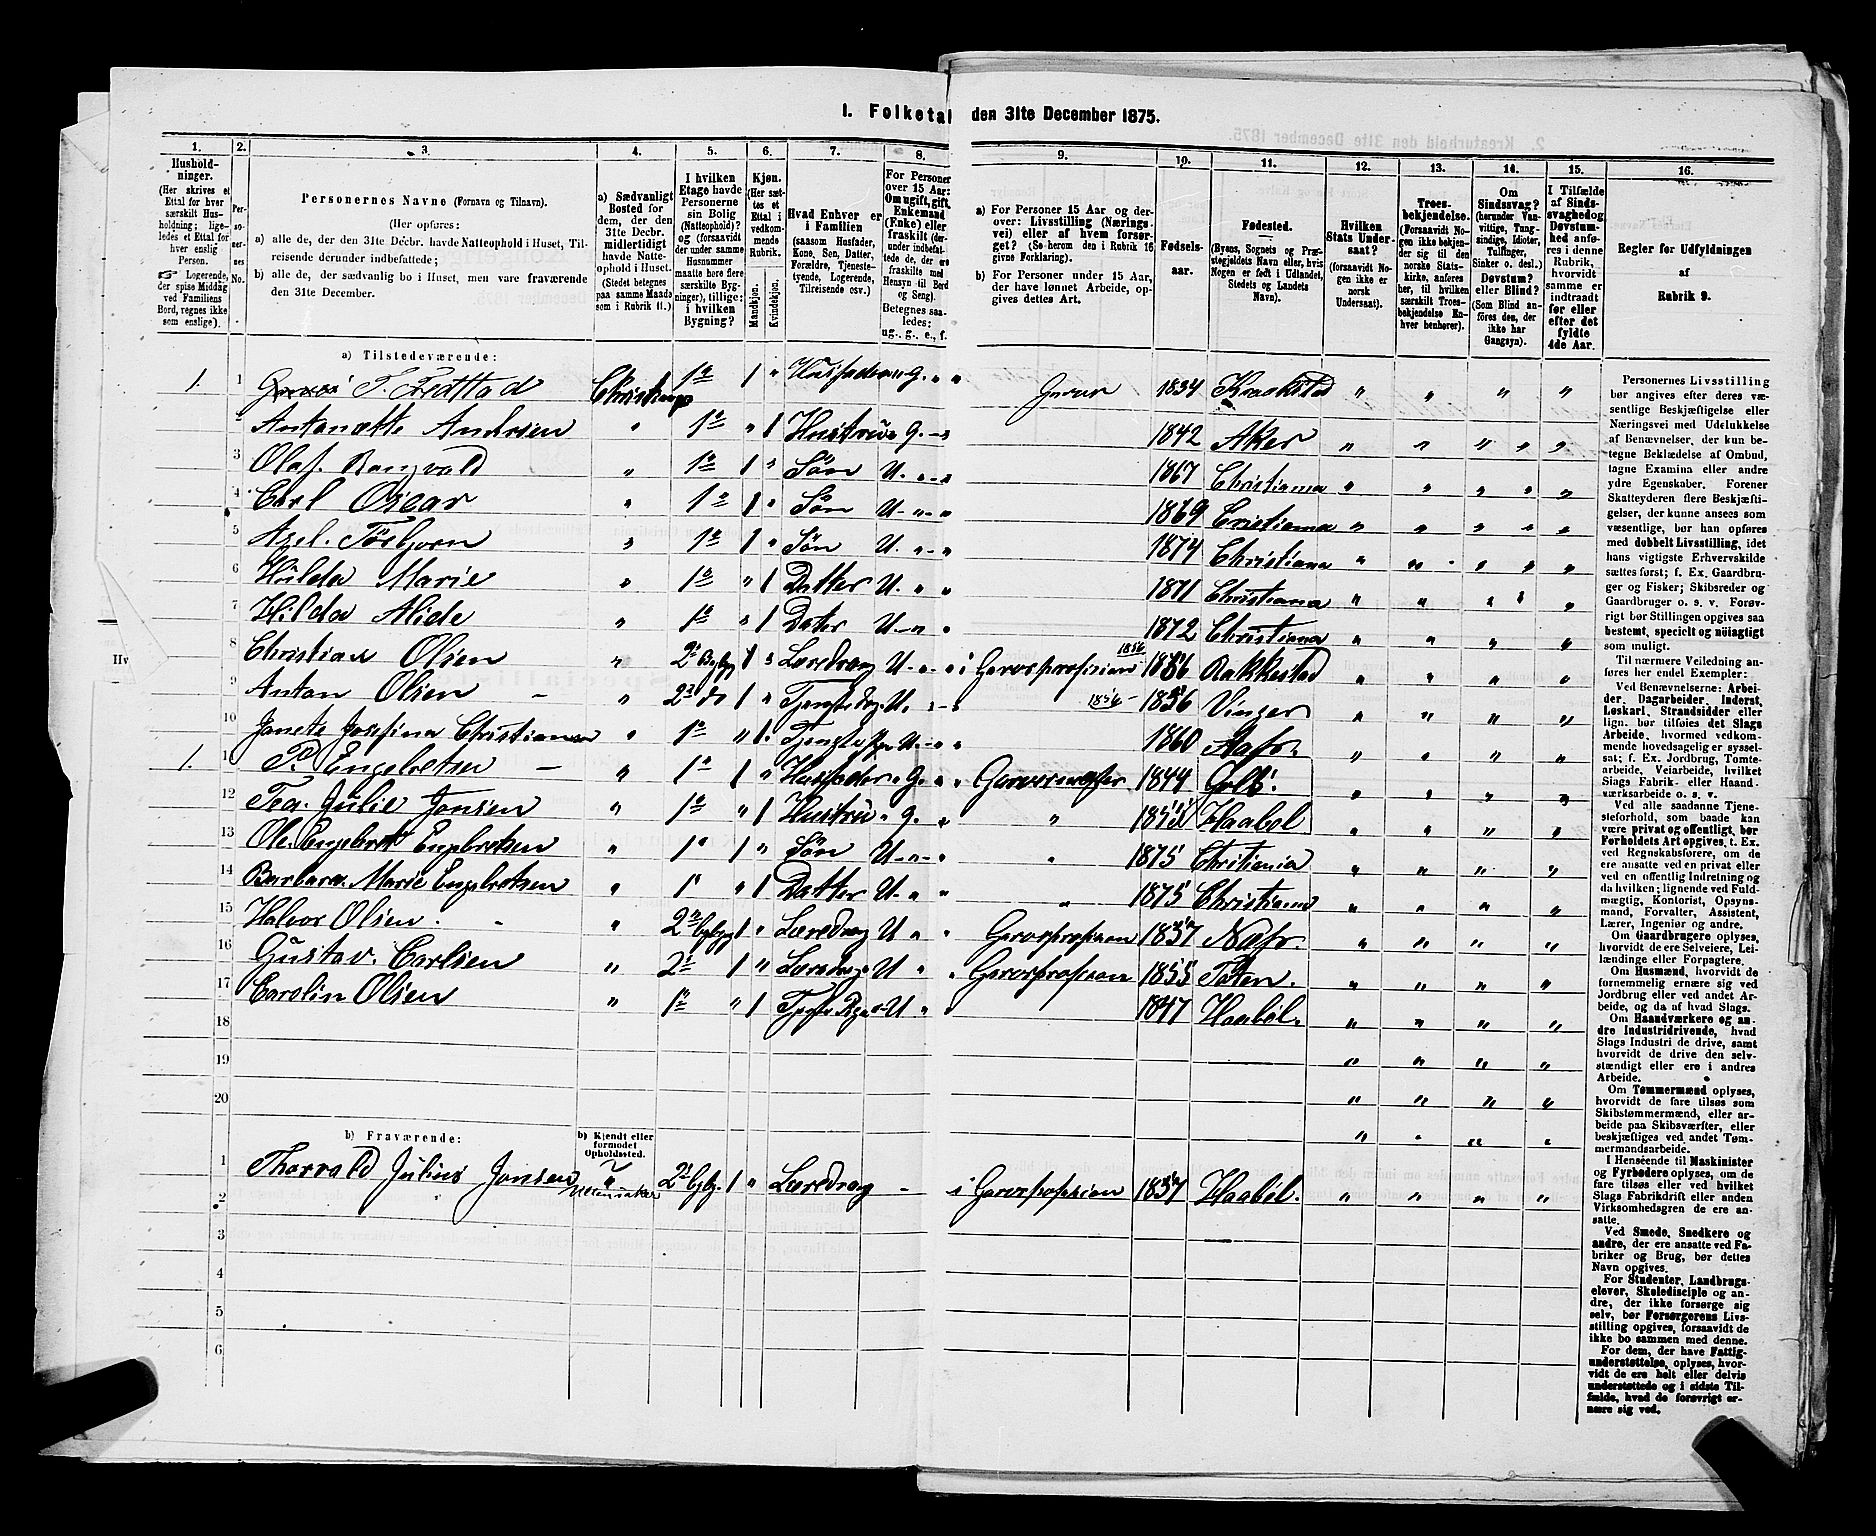 1. Folketal den 31te December 1875.
1. 2. 3. 4. 5. 6. 7. 8. 9. 10. 11. 12. 13. 14. 15. 16.
Husholdninger.
(Her skrives et Ettal for hver særskilt Husholdning; ligeledes et Ettal for hver enslig Person.
☞ Logerende, der spise Middag ved Familiens Bord, regnes ikke som enslige).
Personernes No.
Personernes Navne (Fornavn og Tilnavn).
(Her opføres:
a) alle de, der den 31te Decbr. havde Natteophold i Huset, Tilreisende derunder indbefattede;
b) alle de, der sædvanlig bo i Huset, men vare fraværende den 31te December.
a) Sædvanligt Bosted for dem, der den 31te Decbr. midlertidigt havde Natteophold i Huset.
(Stedet betegnes paa samme Maade som i Rubrik 11.)
I hvilken Etage havde Personerne sin Bolig (Natteophold)? og (forsaavidt der under samme Husnummer maatte høre flere særskilte Bygninger), tillige: i hvilken Bygning?
Kjøn.
(Her sættes et Ettal i vedkommende Rubrik.
Mandkjøn. Kvindekjøn.
Hvad Enhver er i Familien
(saasom Husfader, Kone, Søn, Datter, Forældre, Tjenestetyende, Logerende, Tilreisende osv.)
For Personer over 15 Aar: Om ugift, gift, Enkemand (Enke) eller fraskilt
Betegnes saaledes: ug., g., e., f.
a) For Personer 15 Aar og derover: Livsstilling (Næringsvei) eller af hvem forsørget? (Se herom den i Rubrik 16 givne Forklaring).
b) For Personer under 15 Aar, der have lønnet Arbeide, opgives dettes Art.
Fødselsaar.
Fødested.
(Byens, Sognets og Præstegjeldets Navn eller, hvis Nogen er født i Udlandet, Stedets og Landets Navn).
Hvilken Stats Undersaat?
(forsaavidt Nogen ikke er norsk Undersaat).
Troesbekjendelse.
(Forsaavidt Nogen ikke bekjender sig til den norske Statskirke, anføres her, til hvilken særskilt Troesbekjendelse Enhver henhører).
Om Sindssvag?
(herunder Vanvittige, Tungsindige, Idioter, Tullinger, Sinker o. desl.)
Døvstum? eller Blind?
(Som Blind anføres den, der ikke har Gangsyn).
I Tilfælde af Sindssvaghed og Døvstumhed anføres i denne Rubrik, hvorvidt samme er indtraadt før eller efter det fyldte 4de Aar.
Regler for Udfyldningen af Rubrik 9.
a) Tilstedeværende:
1. 1 T. Fredstad Christiania 1ste 1 " Husfader G. " " 1834 Kraakstad
2 Antonette Andrsen " 1ste " 1 Hustru G. 1842 Aker
3 Olaf Rangvald " 1ste 1 " Søn U. 1867 Christiania
4 Carl Oscar " 1ste 1 " Søn U. 1869 Cristiania
5 Axel Torbjorn " 1ste 1 " Søn U. 1874 Christiania
6 Hulda Marie " 1ste " 1 Datter U. 1871 Christiania
7 Hilda Alide " 1ste " 1 Dater U. 1872 Christiania
8 Christian Olsen " 2den Bygg 1 Læredreng U. i Garverprofesion 1856 1856 Rakkestad
9 Anton Olsen " 2 do 1 " U. 1856 1856 Vinger
10 Janette Josefina Christiansen " 1ste " 1 U. 1860
1. 11 P. Engebretsen " 1ste 1 " Husfader G. Garvermester 1844
12 Tea Julie Jonsen " 1ste " 1 Hustru G. " Haabøl
13 Ole Engebret Engebretsen " 1 1 " Søn U. " 1875 Christiania
14 Barbara Marie Engebretsen " 1 " 1 Datter U. " 1875 Christiania
15 Halvor Olsen " 2 bygg 1 " Læredreng U Garverprofesion 1857
16 Gustav Carlsen " 2 1 " Læredreng U Garverprofesion 1855 Toten
17 Carolin Olsen " 1ste " 1 U 1847 Haabøl
18
19
20
b) Fraværende: b) Kjendt eller formodet Opholdssted.
1 Thorvald Julius Jonsen 2 bygg. 1 " Læredreng i Garverprofesion 1857 Haabøl.
2
3
4
5
6
Personernes Livsstilling bør angives efter deres væsentlige Beskjæftigelse eller Næringsvei med Udelukkelse af Benævnelser, der kun betegne Beklædelse af Ombud, tagne Examina eller andre ydre Egenskaber. Forener Skatteyderen flere Beskjæftigelser, der kunne ansees som væsentlige, bør han opføres med dobbelt Livsstilling, idet hans vigtigste Erhvervskilde sættes først; f. Ex. Gaardbruger og Fisker; Skibsreder og Gaardbruger o. s. v. Forøvrigt bør Stillingen opgives saa bestemt, specielt og nøiagtigt som muligt.
Til nærmere Veiledning anføres her endel Exempler:
Ved Benævnelserne: Arbeider, Dagarbeider, Inderst, Løskarl, Strandsidder eller lign. bør tilføies det Slags Arbeide, hvormed vedkommende hovedsagelig er sysselsat; f. Ex. Jordbrug, Tomtearbeide, Veiarbeide, hvilket Slags Fabrik- eller Haandværksarbeide o. s. v.
Ved alle saadanne Tjenesteforhold, som baade kan være privat og offentligt, bør Forholdets Art opgives, t. Ex. ved Regnskabsførere, om de ere ansatte ved en privat eller ved en offentlig Indretning og da hvilken; lignende ved Fuldmægtig, Kontorist, Opsynsmand, Forvalter, Assistent, Lærer, Ingeniør og andre.
Om Gaardbrugere oplyses, hvorvidt de ere Selveiere, Leilændinge eller Forpagtere.
Om Husmænd, hvorvidt de fornemmelig ernære sig ved Jordbrug eller ved andet Arbeide, og da af hvad Slags.
Om Haandværkere og andre Industridrivende, hvad Slags Industri de drive, samt hvorvidt de drive den selvstændigt eller ere i andres Arbeide.
Om Tømmermænd oplyses, hvorvidt de fare tilsøs som Skibstømmermænd, eller arbeide paa Skibsværfter, eller beskjæftiges ved andet Tømmermandsarbeide.
I Henseende til Maskinister og Fyrbødere oplyses, om de fare tilsøs eller ved hvilket Slags Fabrikdrift eller anden Virksomhedsgren de ere ansatte.
Ved Smede, Snedkere og andre, der ere ansatte ved Fabriker og Brug, bør dettes Navn opgives.
For Studenter, Landbrugselever, Skoledisciple og andre, der ikke forsørge sig selv, bør Forsørgerens Livsstilling opgives, forsaavidt de ikke bo sammen med denne.
For dem, der have Fattigunderstøttelse, oplyses, hvorvidt de ere helt eller delvis understøttede og i sidste Tilfælde, hvad de forøvrigt ernære sig ved.